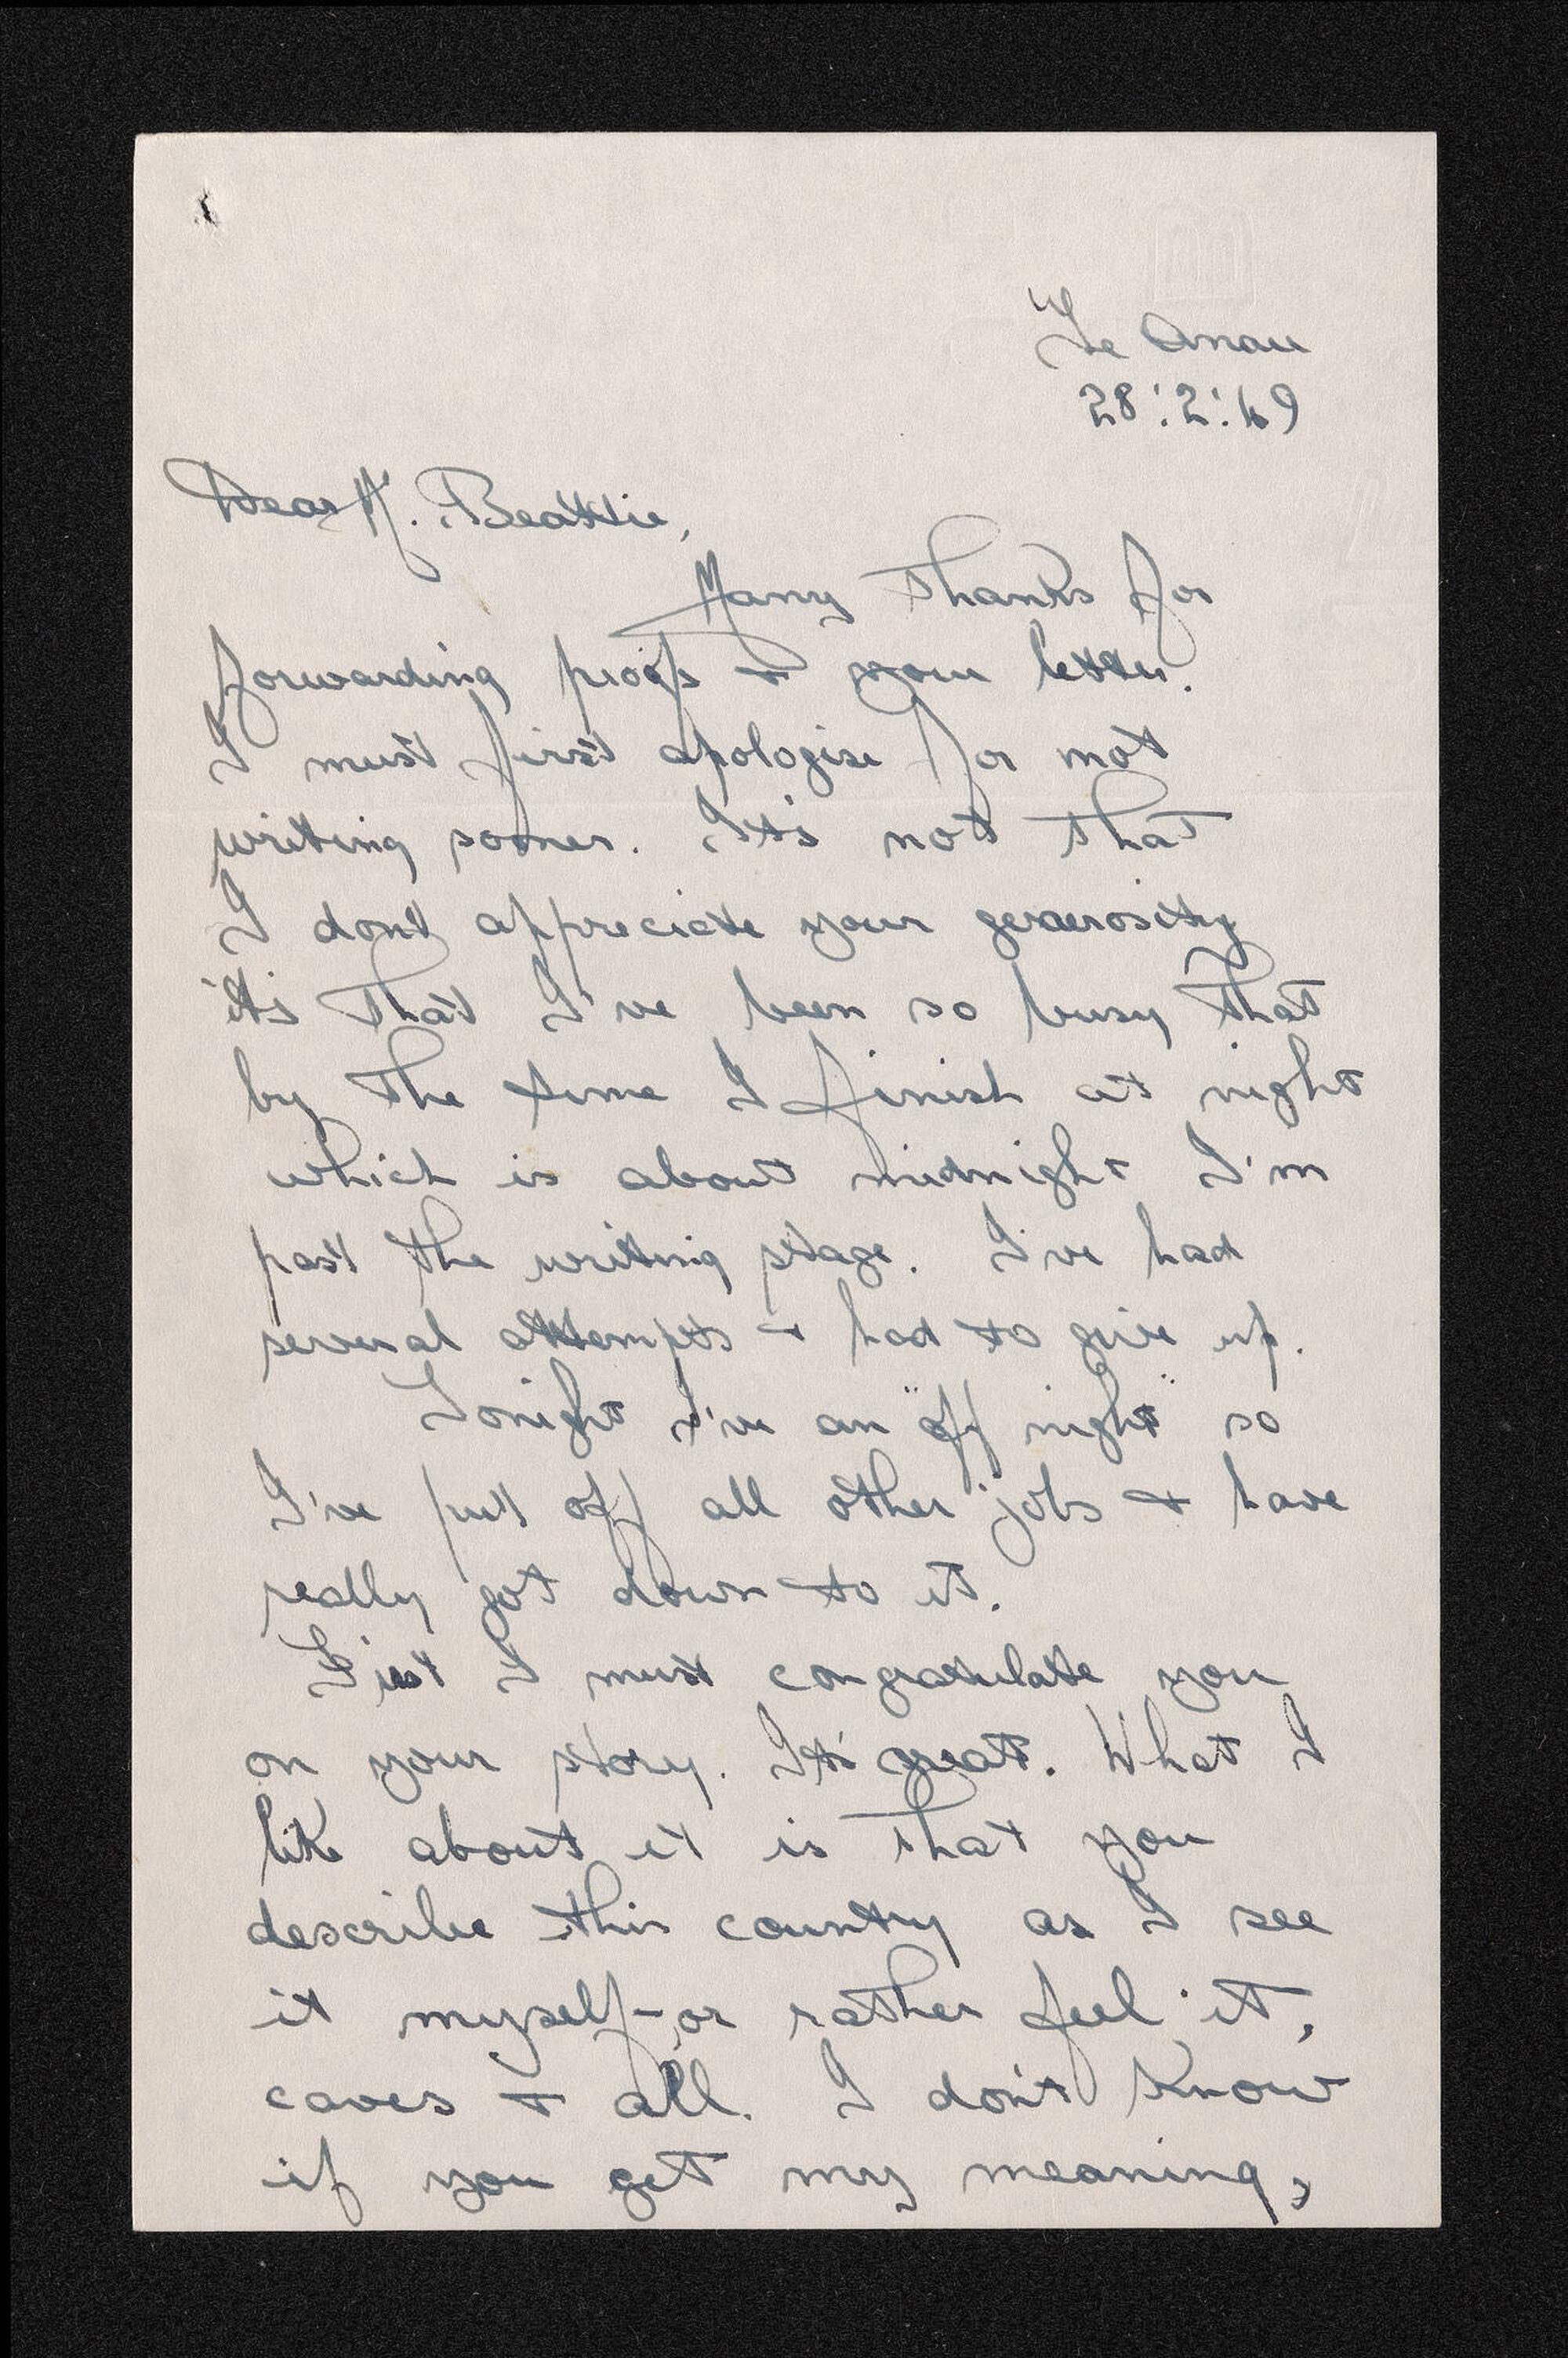 Te Anau
28:2:49
Dear Mr. Beattie,
Many thanks for
forwarding proofs + your letter.
I must first apologise for not
writing sooner. It's not that
I don't appreciate your generosity
it's that I've been so busy that
by the time I finish at night
which is about midnight I'm
past the writing stage. I've had
several attempts + had to give up.
Tonight I've an "off night" so
I've put off all other jobs + have
really got down to it.
First I must congratulate you
on your story. It's great. What I
like about it is that you
describe this country as I see
it myself - or rather feel it,
caves + all. I don't know
if you get my meaning,